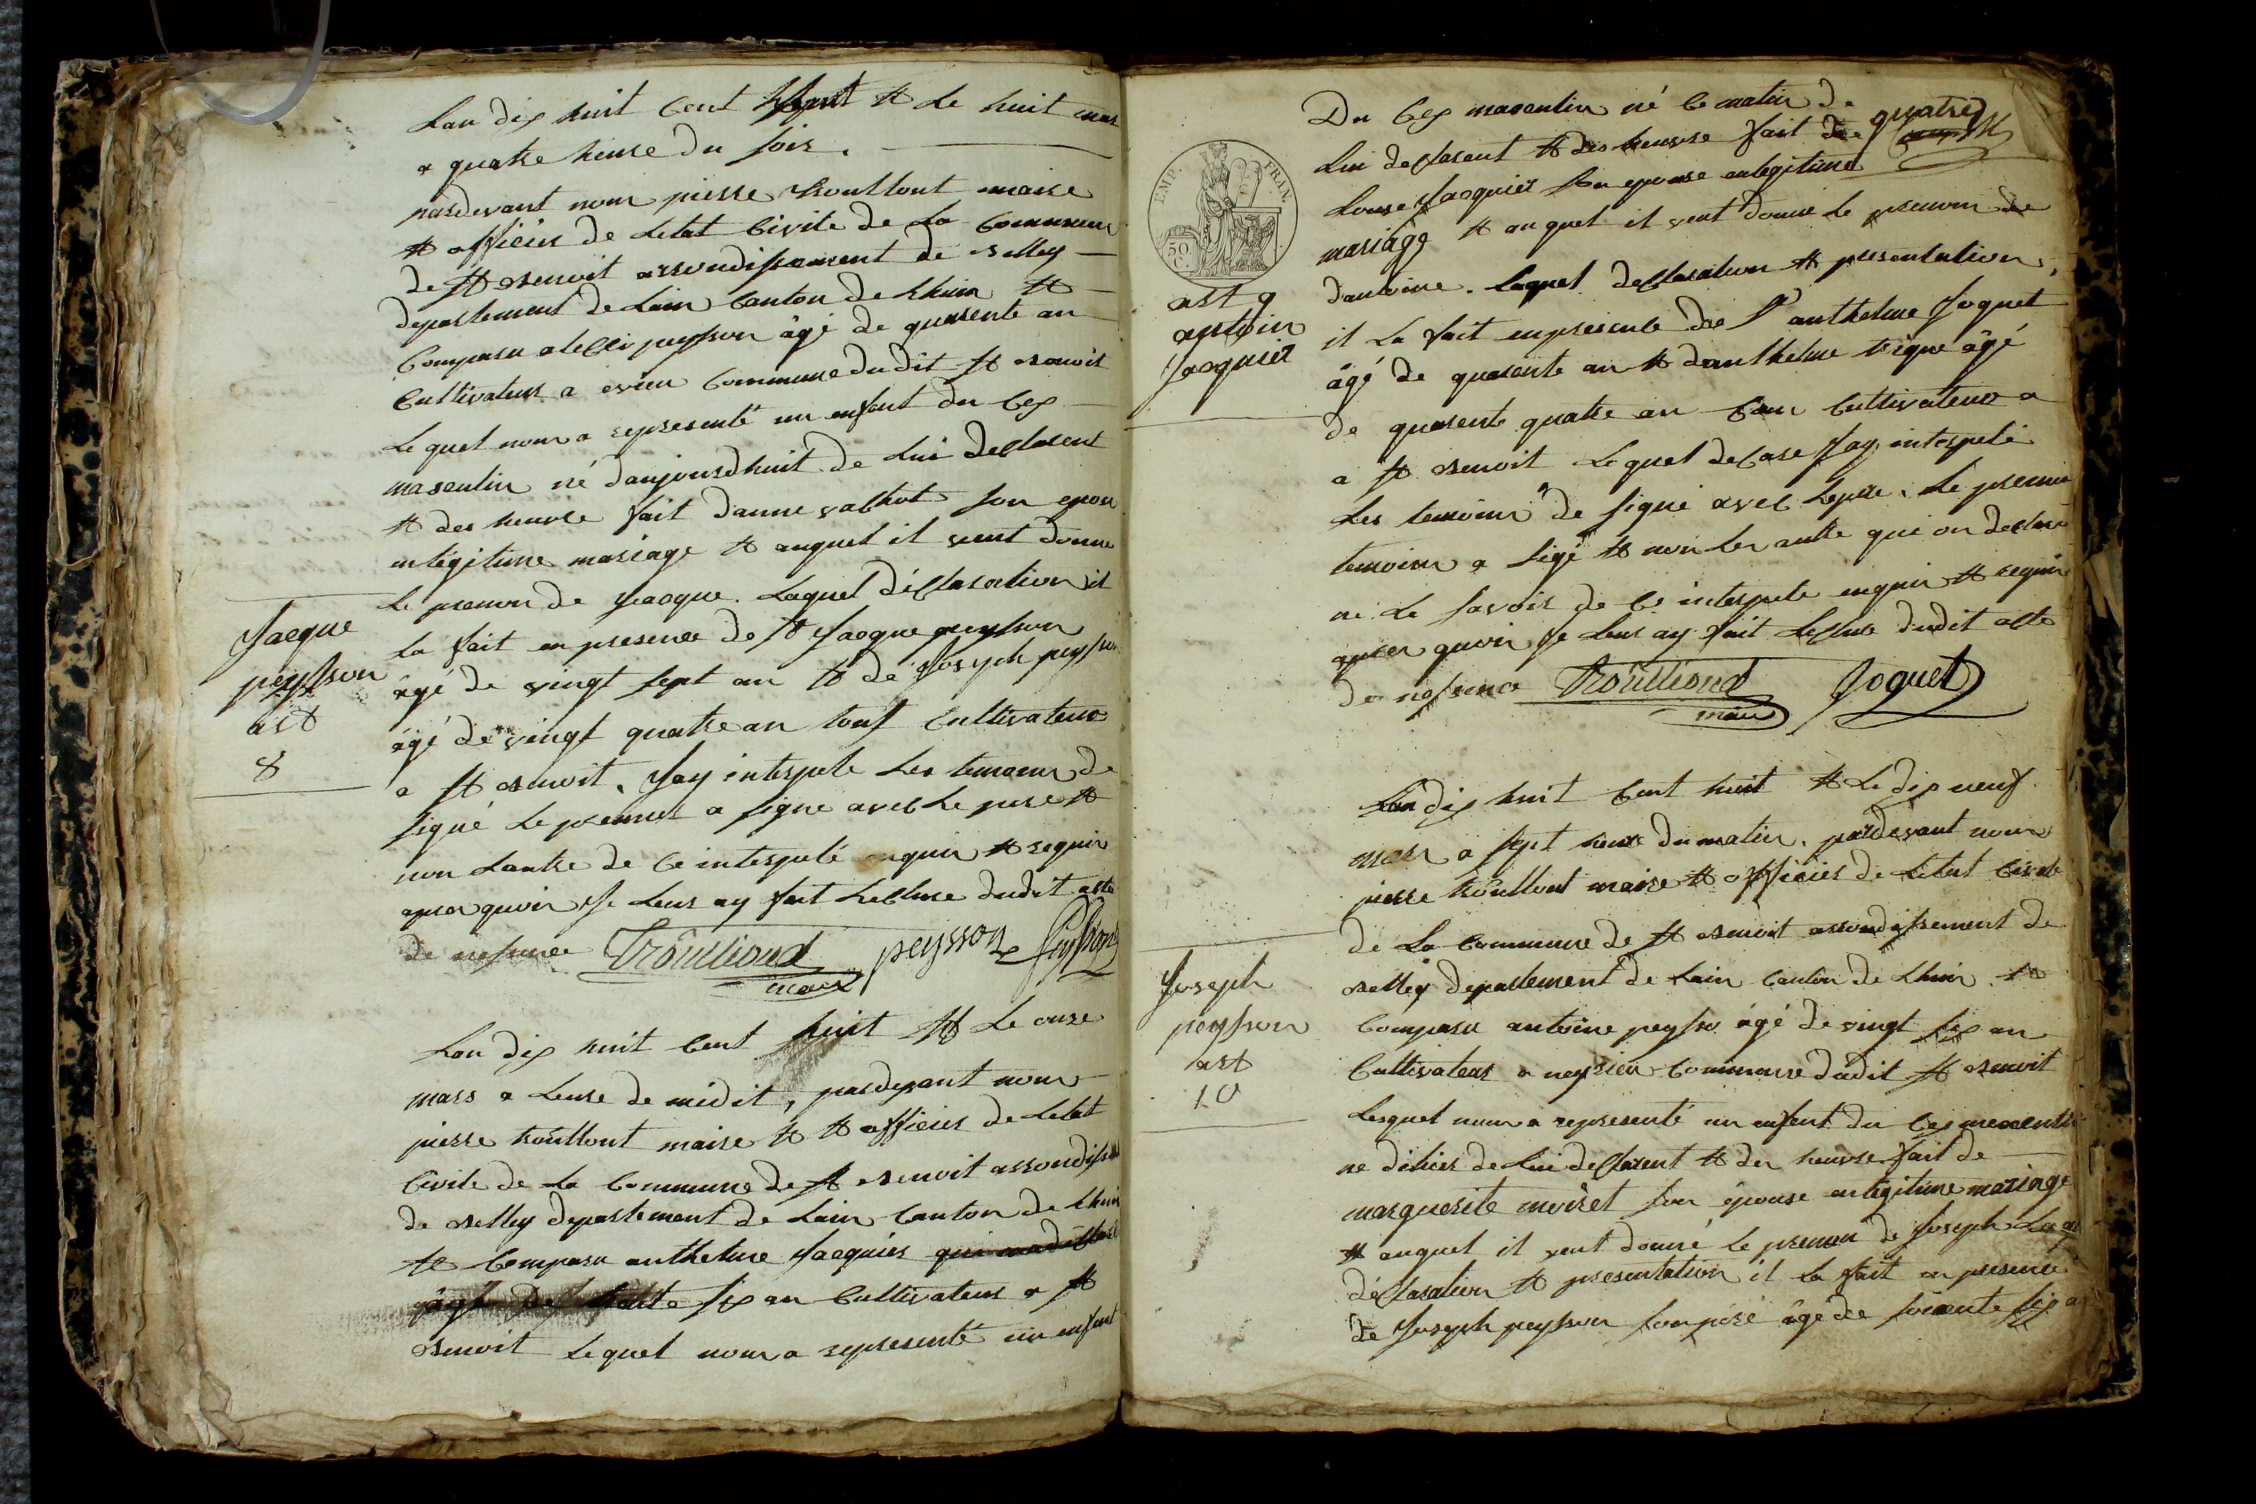 Lan dix huit cent huit & le huit mars
a quatre heure du soir.
pardevant nous pierre trouilloud maire
& officier de letat civile de la commune
de St Benoit arrondissement de Belley
departement de Lain canton de Lhuis &
comparu peysson âgé de quarente an
cultivateur a evieu commune dudit St Benoit
Lequel nous a representé un enfant du cex
masculin né daujourdhuit de lui declarent
& des heuvre fait danne vachot son epou
enlégitime mariage & auquel il veut donne
le prenon de Jacque. Laquel déclaration il
La fait en presence de St Jacque peysson
âgé de vingt sept an & de Joseph peysson
âgé de vingt quatre an tout cultivateur
a St Benoit, Jay interpele les temoins de
signé le premier a signe avec le pere &
non lautre de ce interpelé enquir & requir
apres quoir Je leur ay fait lecture dudit acte
de nessance Trouilloud peysson Peysson
maire
Jacque
peysson
act
8
Lan dix huit cent huit & le onze
mars a leure de midit, pardevant nous
pierre trouilloud maire & & officier de letat
civile de la commune de St Benoit arrondisse
de Belley departement de Lain canton de Lhuis
& comparu anthelme Jacquier qui
âgé de trente six an cultivateur a St
Benoit Lequel nous a representé un enfant
EMP. FRAN.
50 C.
act 9
antoin
Jacquier
Du cex masculin né ce matin de
Lui declarent & des heuvre fait de quatre
Louise Jacquier son epouse enlegitime
mariage & auquel il veut donne le prenom de
dantoine. Laquel declaration & presentation,
il La fait enpresente de Sr anthelme Joguet
âgé de quarente an & danthelme trigué âgé
de quarente quatre an tous cultivateur a
a St Benoit Lequel Jay interpelé
Les temoins de signé avec lepere. Le premie
temoins a sigé & non les autre qui on declaré
ne le savoir de ce interpele enquir & requir
apres quoir Je leur ay fait lecture dudit acte
de nessence Trouilloud Joguet
maire
Lan dix huit cent huit & le dix neuf
mars a sept heure du matin, pardevant nous
pierre trouilloud maire & officier de letat civile
de La commune de St Benoit arrondissement de
Belley departement de Lain canton de Lhuis &
comparu antoine peysso âgé de vingt six an
cultivateur a neyrieu commune dudit St Benoit
Lequel nous a representé un enfent du cex
ne dihier de lui declarent & des heuvre fait de
marguerite moiret son épouse enlégitime mariage
& auquel il veut donné le prenon de Joseph
déclaration & presentation il la fait en presence
de Joseph peysson son péré âgé de soixente six a
Joseph
peysson
act
10